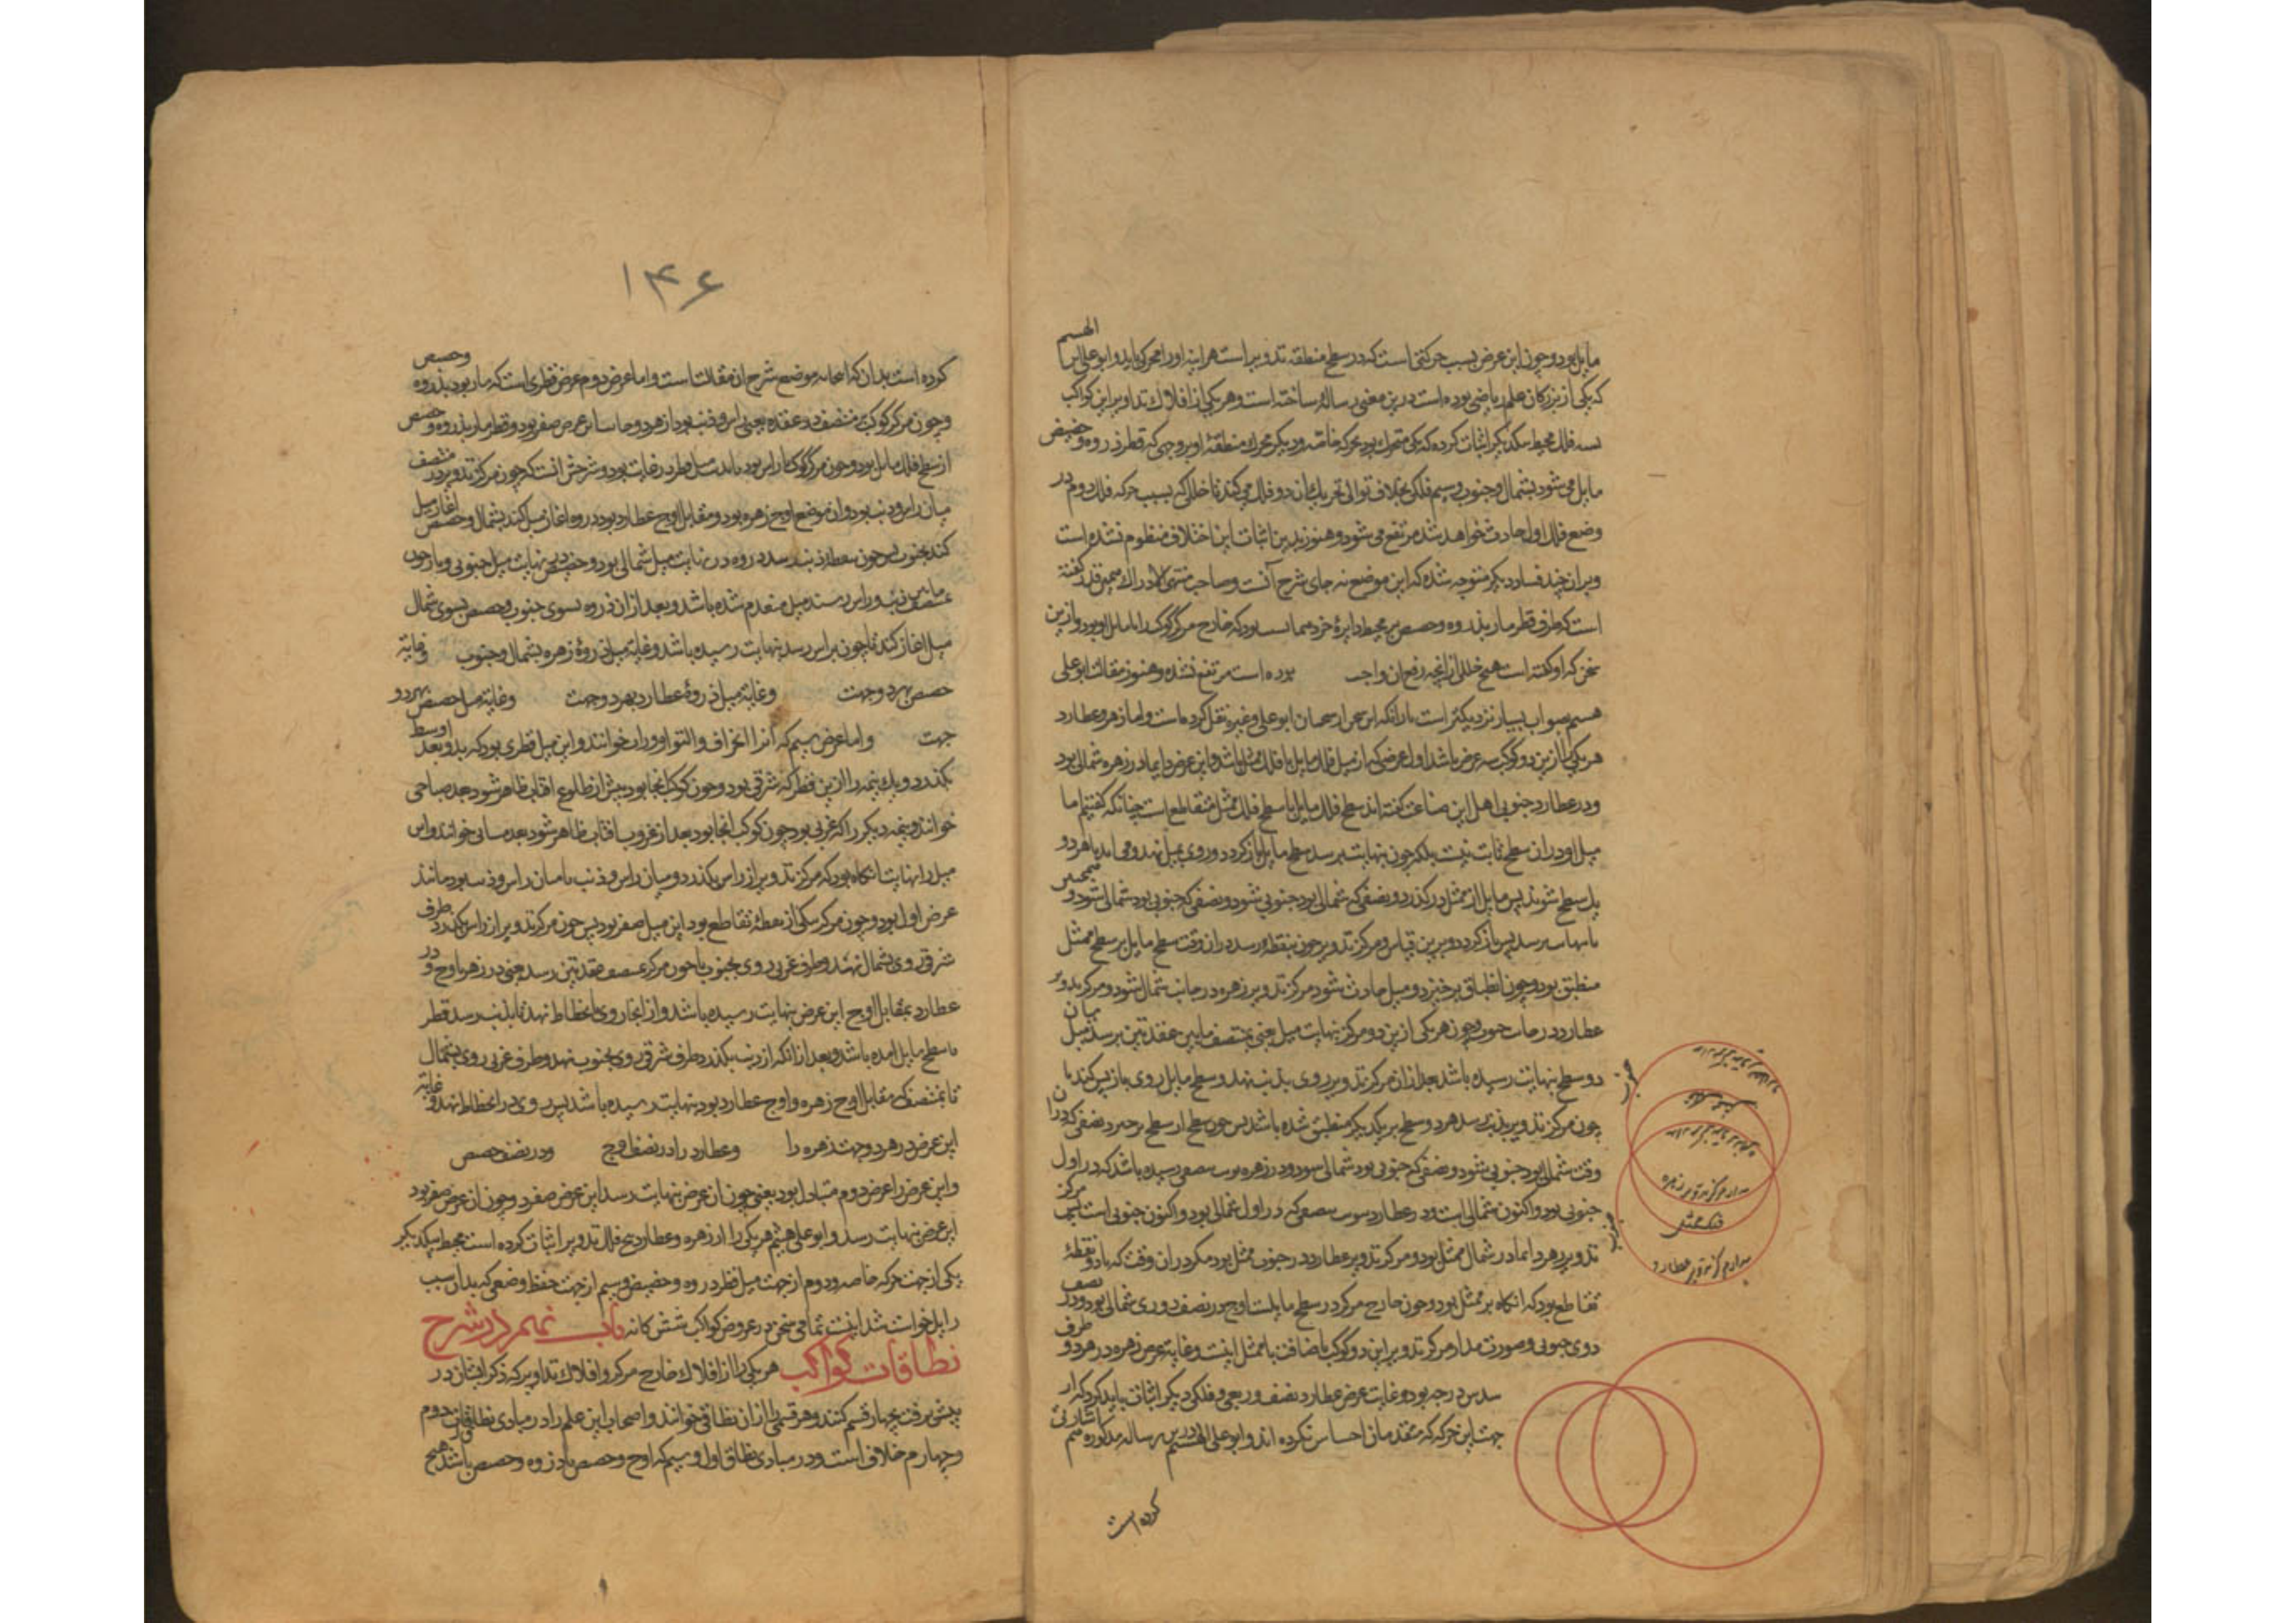 مایل بود و چون این عرض بسبب حرکتی است که در سطح منطقه تدویر است هر اینه اورا محرکی باید و ابو علی ابن
الهیثم
که یکی از بزرکان علم ریاضی بوده است درین معنی رسالۀ ساخته است و هر یکی از افلاک تداویر این کواکب
سه فلک محیط بیکدیکر اثبات کرده که یکی متحرک بود بحرکه خاصه و دیکر محرک منطقۀ او بر وجهی که قطر ذروه و حضیض
مایل می شود بشمال و جنوب و سیم فلکی بخلاف توالی تحریک ان دو فلک می کند تا خللی که بسبب حرکه فلک دوم در
وضع فلک اول حادث خواهد شد مرتفع می شود و هنوز بدین اثبات این اختلاف منظوم نشده است
و بران چند فساد دیکر متوجه شده که این موضع نه جای شرح آنست و صاحب منتهی الادراک همین قدر کفته
است که طرف قطر مار بذروه و حضیض بر محیط دایرۀ خرد بود که خارج مرکز کوکب را با مایل او بود و ازین
سخن که او کفته است هیچ خللی از انچه رفع ان واجب بوده است مرتفع نشده و هنوز مقالت ابو علی
هیثم بصواب بسیار نزدیکتر است ابو علی و غیره نقل کرده است و اما زهره و عطارد
هر یکی را ازین دو کوکب سه عرض باشد اول عرضی که از میل فلک مایل با فلک ممثل باشد و این عرض دایما در زهره شمالی بود
و در عطارد جنوبی اهل این صناعت کفته اند سطح فلک مایل با سطح فلک ممثل متقاطع است چنانکه کفتیم اما
میل او دران سطح ثابت نیست بلکه چون بنهایت برسد سطح مایل باز کردد و روی بمیل نهد و می اید تا هر دو
یک سطح شوند پس مایل از ممثل درکذرد و نصفی که شمالی بود جنوبی شود و نصفی که جنوبی بود شمالی شود و همچنین
تا بنهایت برسد پس باز کردد و برین قیاس و مرکز تدویر چون بنقطۀ رسد دران وقت سطح مایل بر سطح ممثل
منطبق بود و چون انطباق برخیزد و میل حادث شود مرکز تدویر زهره در جانب شمال شود و مرکز تدویر
عطارد در جانب جنوب و چون هر یکی ازین دو مرکز بنهایت میل یعنی بمنتصف مابین عقدتین برسد میل میان
دو سطح بنهایت رسیده باشد بعد ازان مرکز تدویر روی بذنب نهد و سطح مایل روی باز پس کند تا
چون مرکز تدویر بذنب رسد هر دو سطح بر یکدیکر منطبق شده باشد پس چون سطح از سطح برخیزد نصفی که دران
وقت شمالی بود جنوبی شود و نصفی که جنوبی بود شمالی شود و در زهره بنصفی رسیده باشد که در اول
جنوبی بود و اکنون شمالی است و در عطارد بنصفی که در اول شمالی بود و اکنون جنوبی است پس مرکز
تدویر زهره دایما در شمال ممثل بود و مرکز تدویر عطارد در جنوب ممثل بود مکر دران وقت که بادو نقطۀ
تقاطع بود که انکاه بر ممثل بود و چون خارج مرکز در سطح مایلست اوج در نصف دوری شمالی بود و در نصف
دوری جنوبی و صورت مدار مرکز تدویر این دو کوکب باضافت با ممثل اینست و غایت عرض زهره در هر دو طرف
سدس درجه بود و غایت عرض عطارد نصف و ربعی و فلکی دیکر اثبات باید کرد که از
جهت این حرکه که متقدمان احساس نکرده اند و ابو علی الهیثم درین رساله مذکوره هم اشارتی
کرده است
جنوب
فلک ممثل
مدار مرکز تدویر زهره
فلک ممثل
مدار مرکز تدویر عطارد
۱۴۶
کرده است بدان که اینجا نه موضع شرح ان مقالت است و اما عرض دوم عرض قطری است که مار بود بذروه وحضیض
و چون مرکز کوکب منتصف دو عقده یعنی راس و ذنب بود از هر دو جانب این عرض صفر بود و قطر مار بذروه و حضیض
از سطح فلک مایل بود و چون مرکز کوکب بر راس بود یا بذنب میل قطر در غایت بود و شرحش انست که چون مرکز تدویر در منتصف
میان راس و ذنب بود و ان موضع اوج زهره بود و مقابل اوج عطارد بود ذروه اغاز میل کند بشمال و حضیض اغاز میل
کند بجنوب پس چون بنقطۀ ذنب رسد ذروه در نهایت میل شمالی بود و حضیض در نهایت میل جنوبی و باز چون
بمنتصف مابین ذنب و راس رسند میل منعدم شده باشد و بعد ازان ذروه بسوی جنوب و حضیض بسوی شمال
میل اغاز کند تا چون براس رسد بنهایت رسیده باشد و غایة میل ذروۀ زهره بشمال و جنوب وغایة
حضیض بهر دو جهت وغایة میل ذروۀ عطارد بهر دو جهت وغایة میل حضیض بهر دو
جهت و اما عرض سیم که آنرا انحراف و التوا و وراب خوانند و این میل قطری بود که بدو بعد اوسط
بکذرد و یک نیمه را ازین قطر که شرقی بود و چون کوکب انجا بود پیش از طلوع افتاب ظاهر شود بعد صباحی
خوانند و نیمه دیکر را که غربی بود چون کوکب انجا بود بعد از غروب افتاب ظاهر شود بعد مسائی خوانند و این
میل را نهایت انکاه بود که مرکز تدویر از راس بکذرد و میان راس و ذنب یا میان راس و ذنب بود مانند
عرض اول بود و چون مرکز بیکی از نقطۀ تقاطع بود این میل صفر بود پس چون مرکز تدویر از راس بکذرد طرف
شرقی روی بشمال نهد و طرف غربی روی بجنوب تا چون مرکز بمنتصف عقدتین رسد یعنی در زهره باوج و در
عطارد بمقابل اوج این عرض بنهایت رسیده باشد و از انجا روی بانحطاط نهد تا بذنب رسد قطر
با سطح مایل امده باشد و بعد ازانکه از ذنب بکذرد طرف شرقی روی بجنوب نهد و طرف غربی روی بشمال
تا بمنتصف که مقابل اوج زهره و اوج عطارد بود بنهایت رسیده باشد پس روی در انحطاط نهد و غایة
این عرض در هر دو جهت زهره را و عطارد را در نصف اوج و در نصف حضیض
و این عرض را عرض دوم متبادل بود یعنی چون ان عرض بنهایت رسد این عرض صفر بود و چون ان عرض صفر بود
این عرض بنهایت رسد و ابو علی هیثم هر یکی را از زهره و عطارد پنج فلک تدویر اثبات کرده است محیط بیکدیکر
یکی از جهت حرکه خاصه و دوم از جهت میل قطر ذروه و حضیض و سیم از جهت حفظ وضعی که بدان سبب
زایل خواست شد اینست تمامی سخن در عروض کواکب شش کانه باب نهم در شرح
نطاقات کواکب هر یکی را از افلاک خارج مرکز و افلاک تداویر که ذکر ایشان در
پیش برفت بچهار قسم کنند و هر قسمی را ازان نطاقی خوانند و اصحاب این علم را در مبادی نطاقات دوم
و چهارم خلاف است و در مبادی نطاق اول و سیم که اوج و حضیض یا ذروه و حضیض باشد هیچ